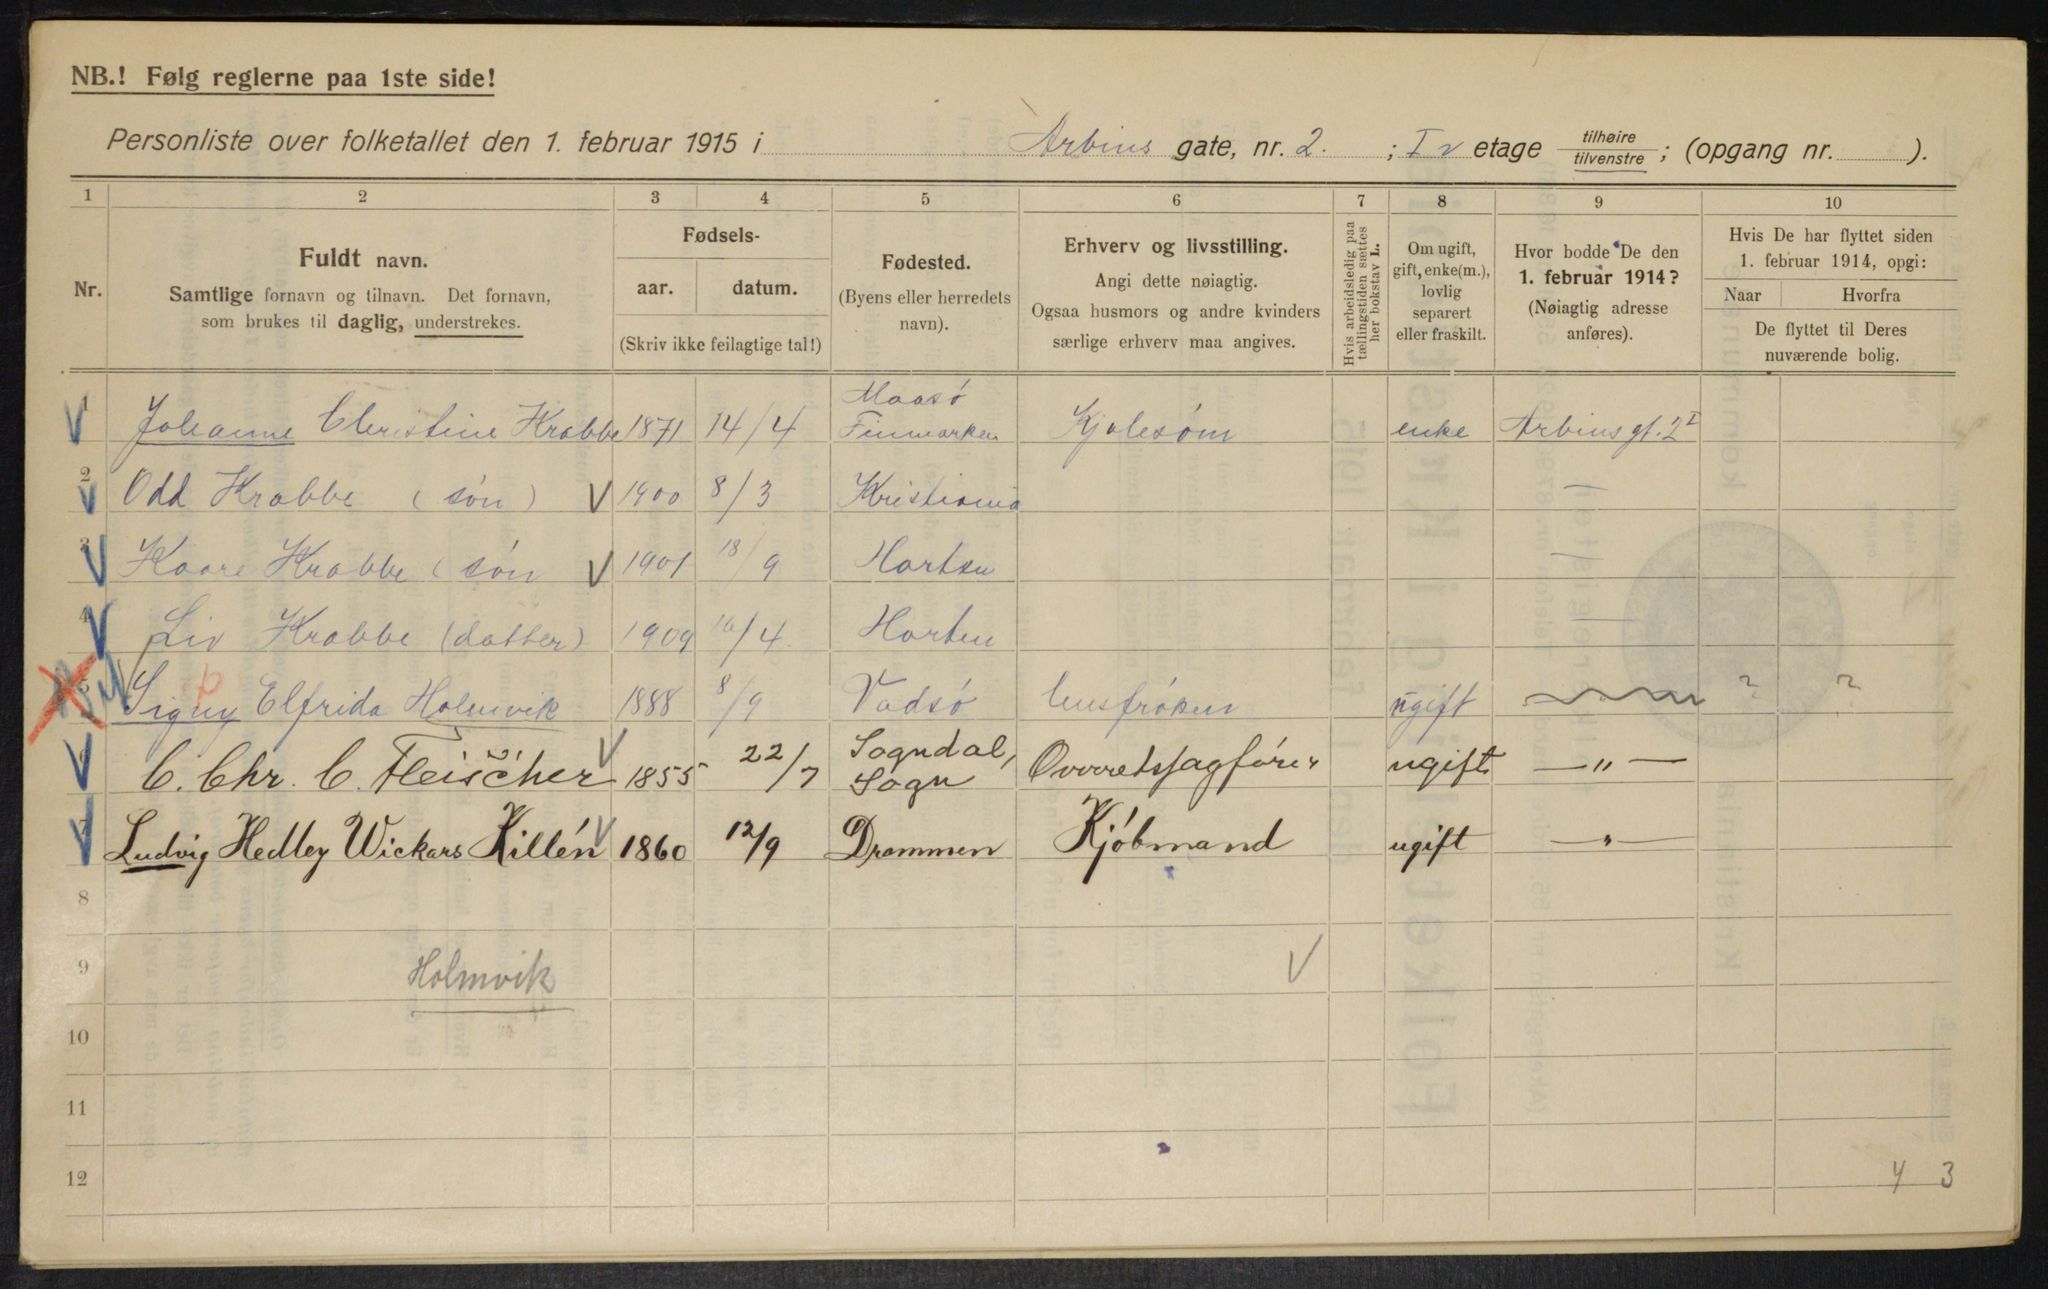 NB.! Følg reglerne paa 1ste side!
Personliste over folketallet den 1. februar 1915 i Arbins gate, nr. 2. ; I v etage tilhøire/tilvenstre ; (opgang nr. ).
1 2 3 4 5 6 7 8 9 10
Nr.
Fuldt navn.
Samtlige fornavn og tilnavn. Det fornavn,
som brukes til daglig, understrekes.
Fødsels-
aar. datum.
(Skriv ikke feilagtige tal!)
Fødested.
(Byens eller herredets
navn).
Erhverv og livsstilling.
Angi dette nøiagtig.
Ogsaa husmors og andre kvinders
særlige erhverv maa angives.
Hvis arbeidsledig paa
tællingstiden sættes
her bokstav L.
Om ugift,
gift, enke(m.),
lovlig
separert
eller fraskilt.
Hvor bodde De den
1. februar 1914?
(Nøiagtig adresse
anføres).
Hvis De har flyttet siden
1. februar 1914, opgi:
Naar Hvorfra
De flyttet til Deres
nuværende bolig.
1 Johanne Christine Krabbe 1871 14/4 Maasö Finmarken Kjolesöm enke Arbinsgt. 2 I
2 Odd Krabbe (sön) 1900 8/3 Kristiania —
3 Kaare Krabbe (sön 1901 18/9 Horten —
4 Liv Krabbe (datter) 1909 /4 Horten —
5 Signy Elfrida Holmvik 1888 8/9 Vadsö husfröken ugift ? ?
6 C. Chr. C. Fleischer 1855 22/7 Sogndal, Sogn Overretssagförer ugift —„—
7 Ludvig Hedley Wickars Killén 1860 12/9 Drammen Kjöbmand ugift —„—
8
9 Holmvik
10
11
12 4 3